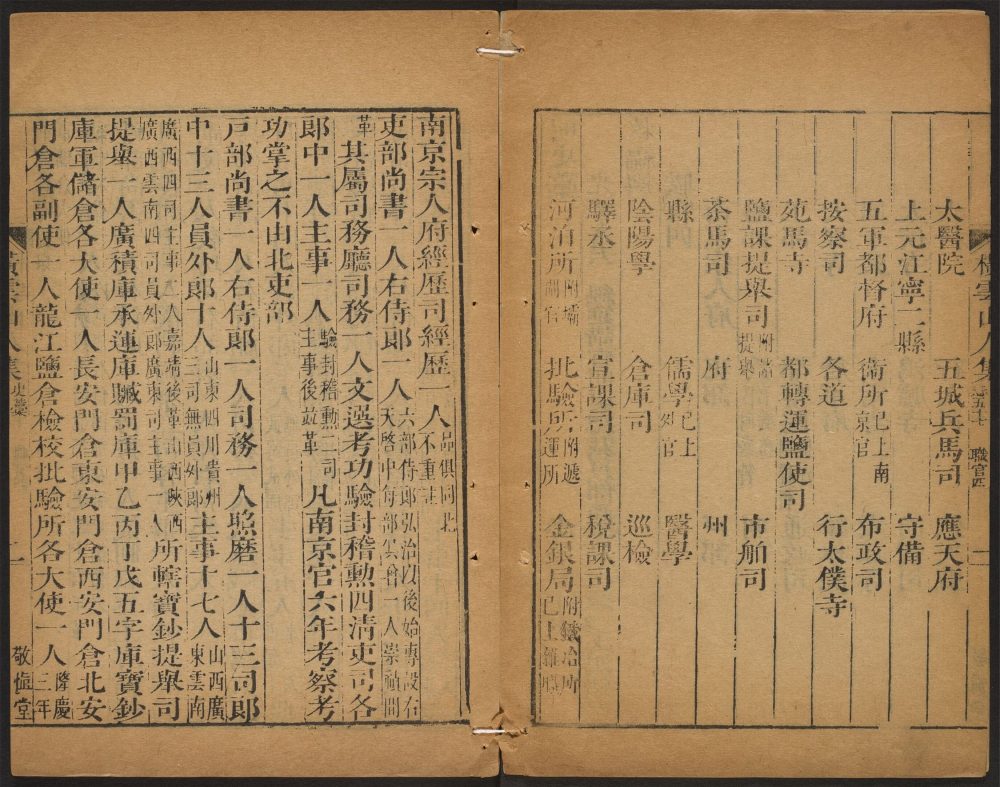 橫雲山人集 職官四 一
太醫院 五城兵馬司 應天府
上元江寧二縣 守備
五軍都督府 衞所已上南京官 布政司
按察司 各道 行太僕寺
苑馬寺 都轉運鹽使司
鹽課提舉司 市舶司
茶馬司 府 州
縣 儒學已上外官 醫學
陰陽學 倉庫司 巡檢
驛丞 宣課司 稅課司
河泊所附閘壩官 批驗所附遞運所 金銀局附鐵冶所已上雜職
南京宗人府經歷司經歷一人品俱同北不重註
吏部尚書一人右侍郎一人六部侍郎弘治以後始專設右天啓中每部雲增一人崇禎間
革其屬司務廳司務一人文選考功驗封稽勳四清吏司各
郎中一人主事一人驗封稽勳二司主事後竝革凡南京官六年考察考
功掌之不由北吏部
戸部尚書一人右侍郎一人司務一人照磨一人十三司郎
中十三人員外郎十人山東四川貴州三司無員外郎主事十七人山西廣東雲南
廣西四司主事二人嘉靖後革山西陝西廣西雲南四司員外郎廣東司主事一人所轄寶鈔提舉司
提舉一人廣積庫承運庫贓罰庫甲乙丙丁戊五字庫寶鈔
庫軍儲倉各大使一人長安門倉東安門倉西安門倉北安
門倉各副使一人龍江鹽倉檢校批驗所各大使一人隆慶三年
橫雲山人集 史稾 二 敬愼堂